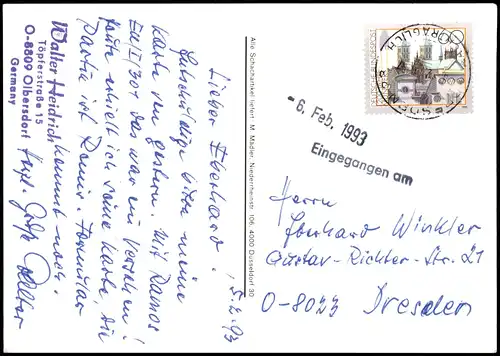 Walter Heidrich
Töpferstraße 15
O-8809 Olbersdorf
Germany
5.2.93
Lieber Eberhard,
Entschuldige bitte meine
Karte von gestern. Mit Ramos
das war ein Versehen!
Heute erhielt ich seine Karte, die
Partie ist Remis. Formular
kommt noch.
Herzl. Grüße
Walter
Alle Schachartikel liefert: M. Mädler, Niederrheinstr. 106, 4000 Düsseldorf 30
- 6. Feb. 1993
Eingegangen am
Herrn
Eberhard Winkler
Gustav-Richter-Str. 21
O-8023 Dresden